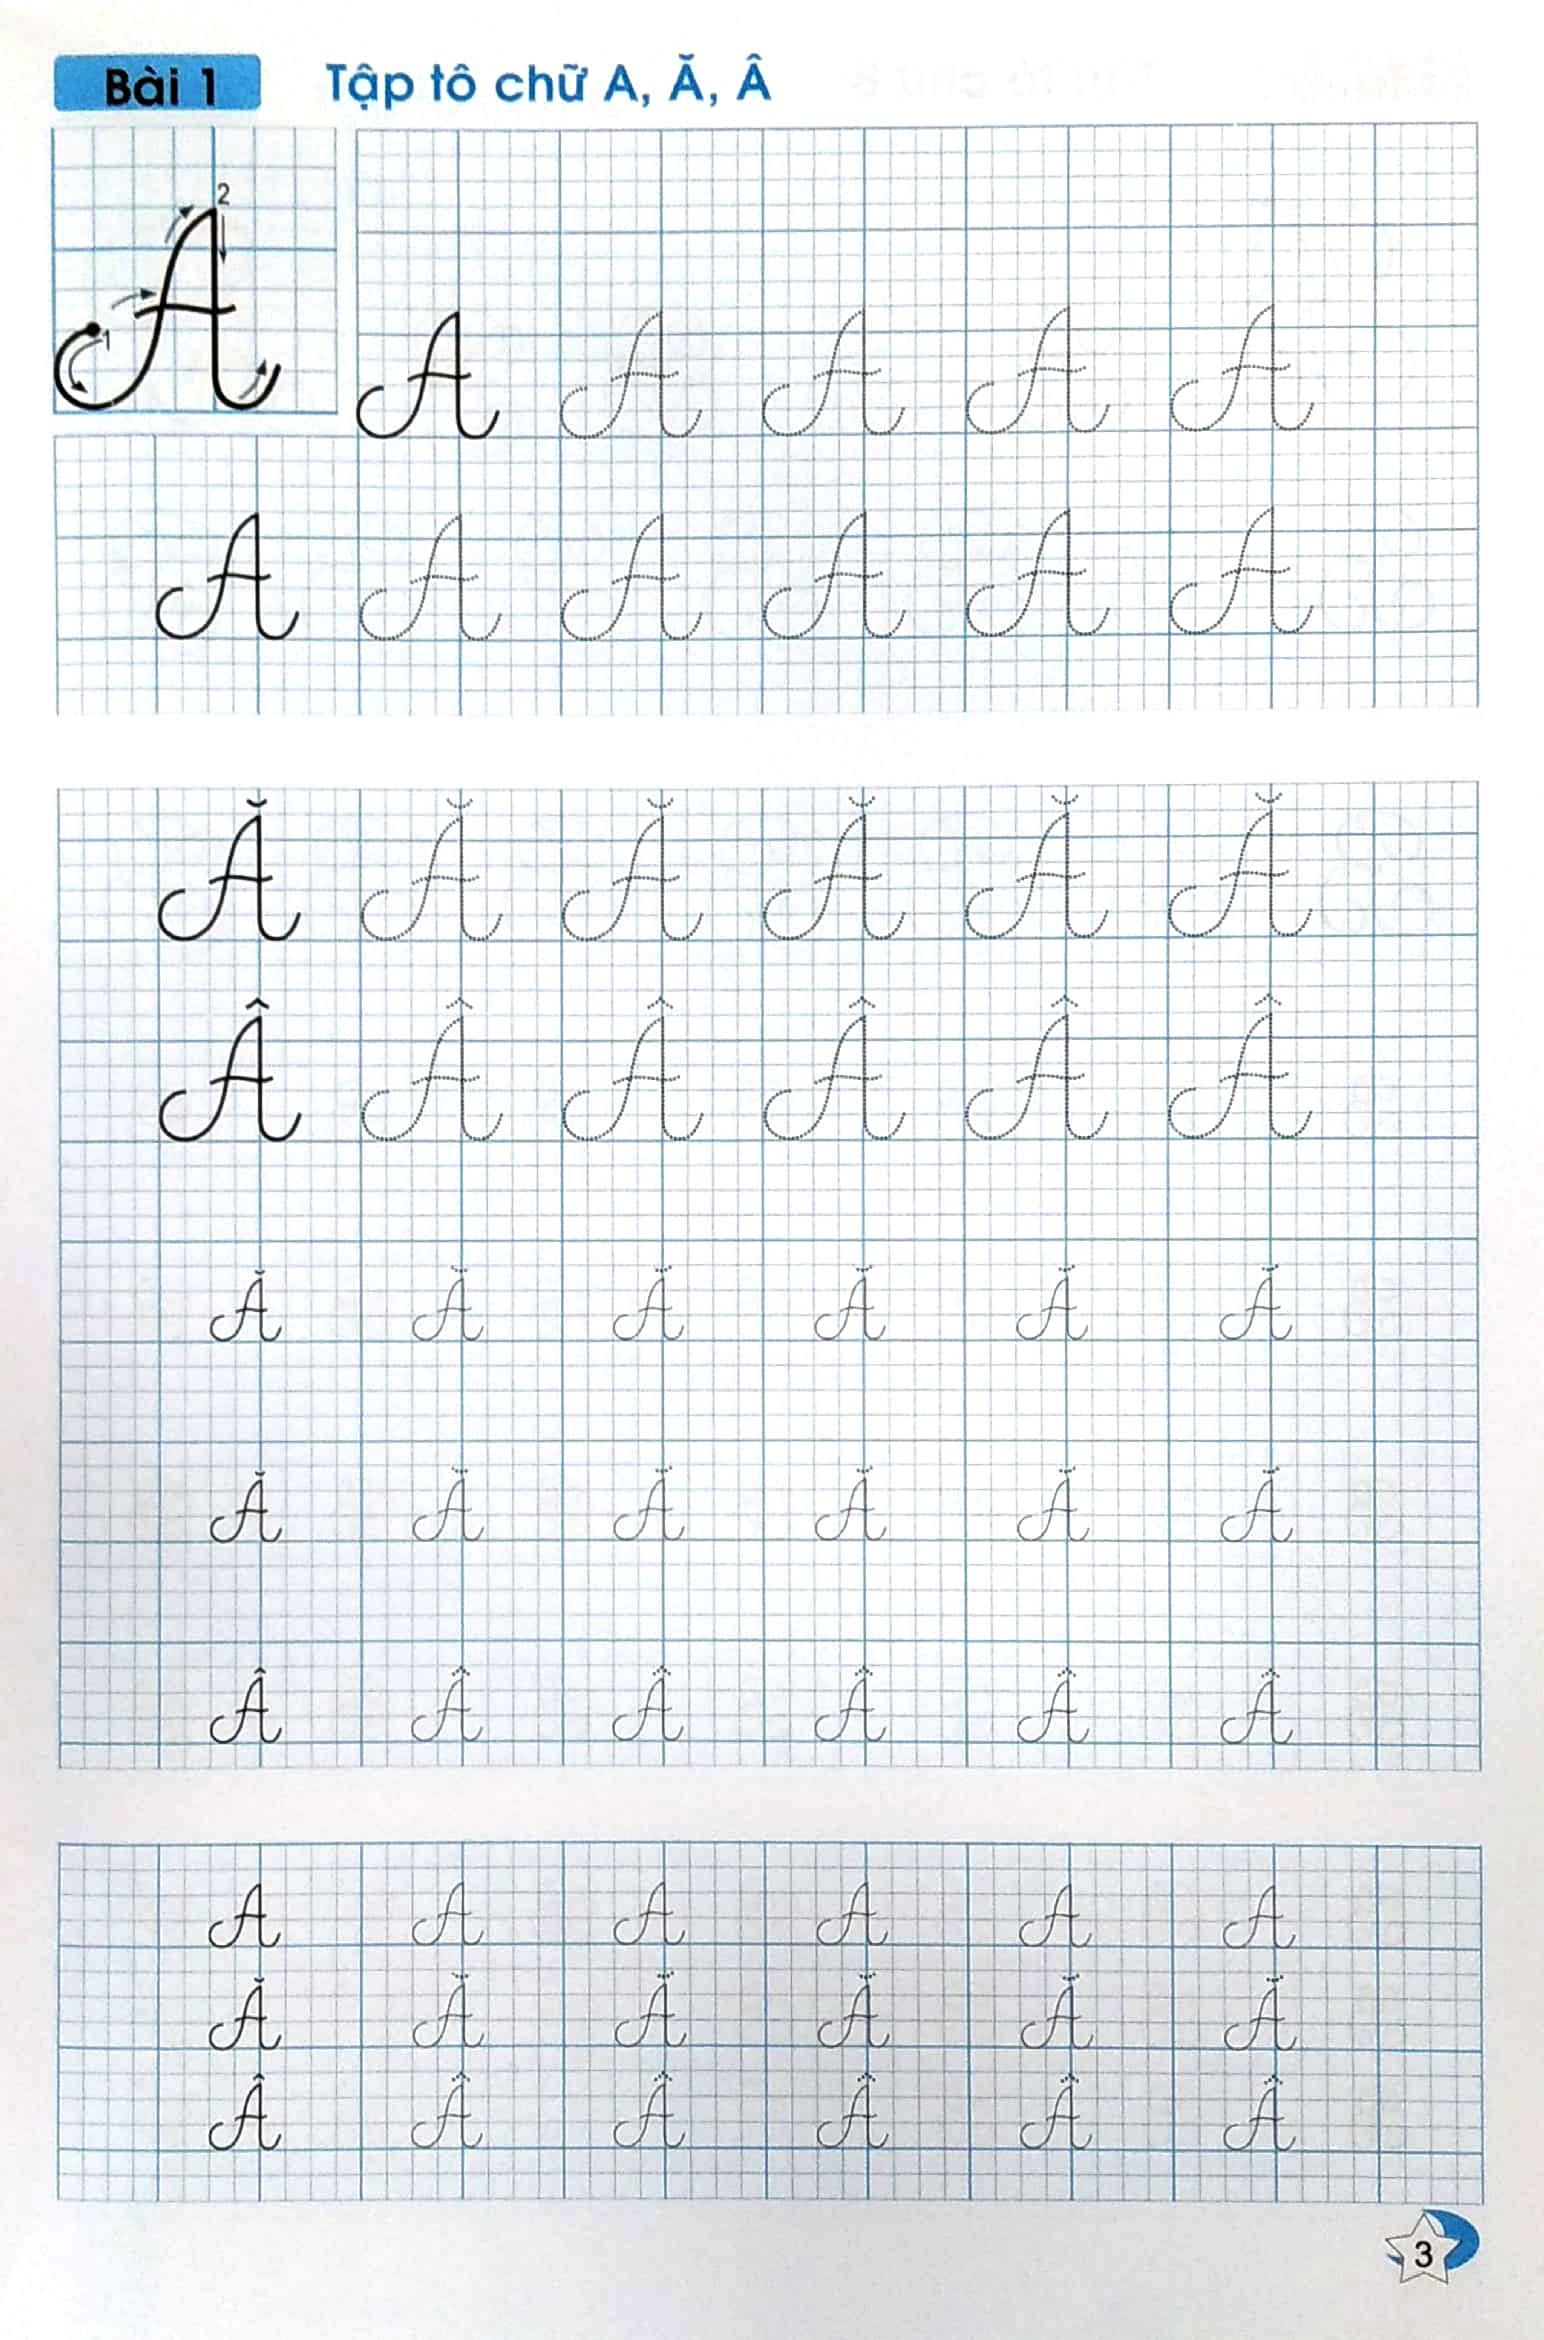 Bài 1 Tập tô chữ A, Ă, Â
2
1
A
A A A A A
A A A A A A
Ă Ă Ă Ă Ă Ă
Â Â Â Â Â Â
Ă Ă Ă Ă Ă Ă
Ă Ă Ă Ă Ă Ă
Â Â Â Â Â Â
A A A A A A
Ă Ă Ă Ă Ă Ă
Â Â Â Â Â Â
3